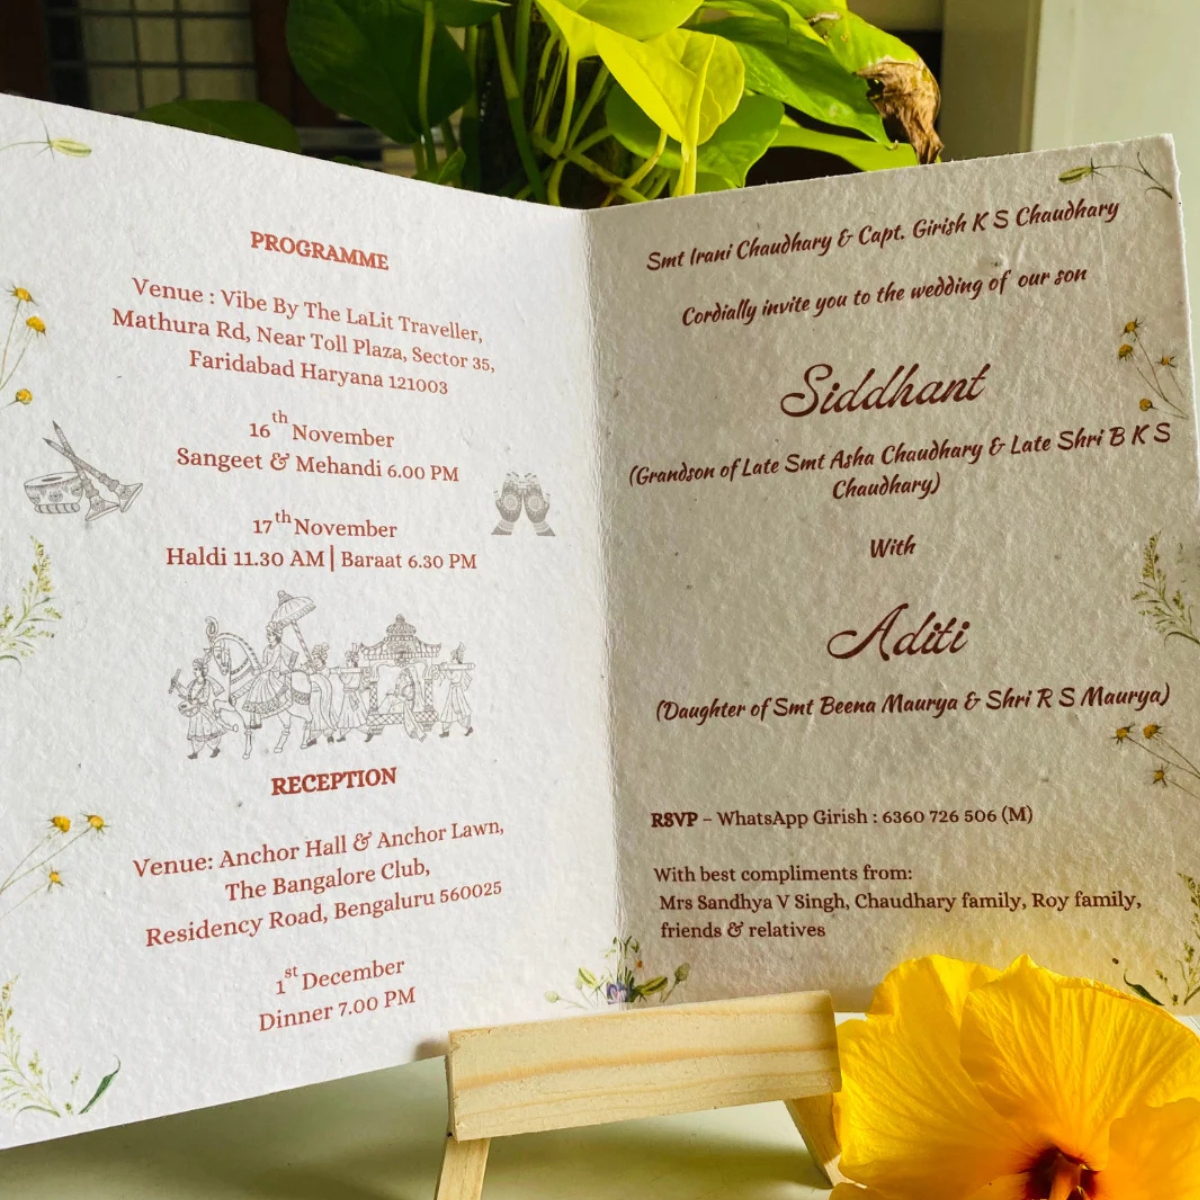 PROGRAMME
Venue : Vibe By The LaLit Traveller,
Mathura Rd, Near Toll Plaza, Sector 35,
Faridabad Haryana 121003
16th November
Sangeet & Mehandi 6.00 PM
17th November
Haldi 11.30 AM | Baraat 6.30 PM
RECEPTION
Venue: Anchor Hall & Anchor Lawn,
The Bangalore Club,
Residency Road, Bengaluru 560025
1st December
Dinner 7.00 PM
Smt Irani Chaudhary & Capt. Girish K S Chaudhary
Cordially invite you to the wedding of our son
Siddhant
(Grandson of Late Smt Asha Chaudhary & Late Shri B K S
Chaudhary)
With
Aditi
(Daughter of Smt Beena Maurya & Shri R S Maurya)
RSVP – WhatsApp Girish : 6360 726 506 (M)
With best compliments from:
Mrs Sandhya V Singh, Chaudhary family, Roy family,
friends & relatives